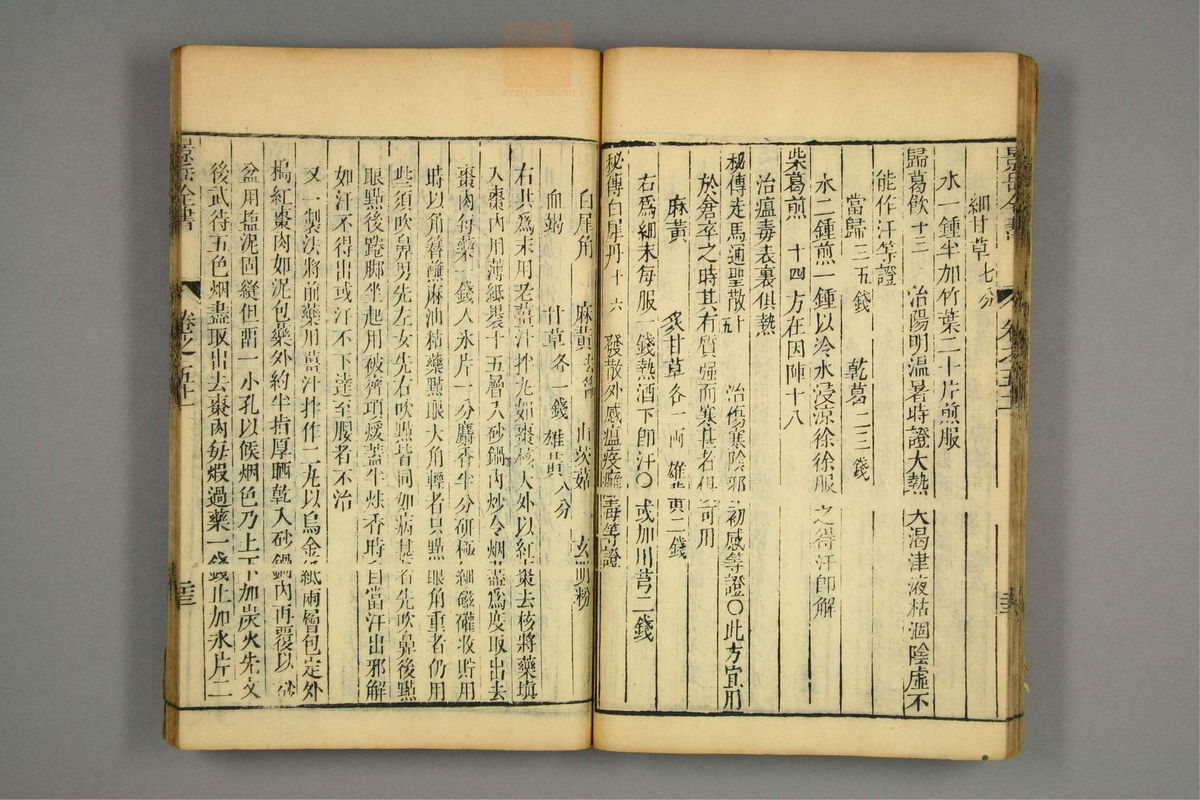 景岳全書
卷之五十一
細甘草七分
水一鍾半加竹葉二十片煎服
歸葛飲十三 治陽明溫暑時證大熱大渴津液枯涸陰虛不
能作汗等證
當歸三五錢 乾葛二三錢
水二鍾煎一鍾以冷水浸涼徐徐服之得汗卽解
柴葛煎 十四方在因陣十八
治瘟毒表裏俱熱
秘傳走馬通聖散十五 治傷寒陰邪初感等證○此方宜用
於倉卒之時其有質強而寒甚者俱可用
麻黃 炙甘草各一兩 雄黃二錢
右爲細末每服一錢熱酒下卽汗○或加川芎二錢
秘傳白犀丹十六 發散外感瘟疫癰毒等證
白犀角 麻黃去節 山茨菇 玄明粉
血竭 甘草各一錢 雄黃八分
右共爲末用老薑汁拌丸如棗核大外以紅棗去核將藥填
入棗內用薄紙裹十五層入砂鍋內炒令烟盡爲度取出去
棗肉每藥一錢入氷片一分麝香半分研極細磁礶收貯用
時以角簪蘸麻油粘藥點眼大角輕者只點眼角重者仍用
些須吹鼻男先左女先右吹點皆同如病甚者先吹鼻後點
眼點後踡脚坐起用被齊項煖蓋半炷香時自當汗出邪解
如汗不得出或汗不下達至腰者不治
又一製法將前藥用薑汁拌作二丸以烏金紙兩層包定外
搗紅棗肉如泥包藥外約半指厚晒乾入砂鍋內再覆以砂
盆用塩泥固縫但畱一小孔以候烟色乃上下加炭火先文
後武待五色烟盡取出去棗肉每煆過藥一錢止加氷片二
景岳全書
卷之五十一